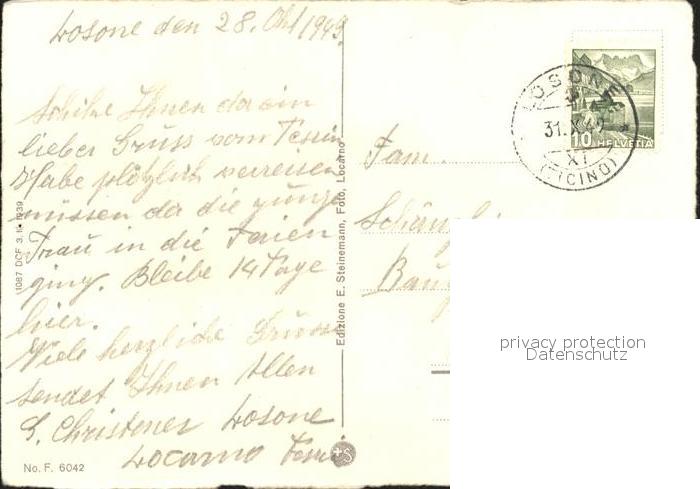 Losone den 28. Okt 1949.
Schike Ihnen da ein
lieber Gruss vom Tessin
Habe plötzlich verreisen
müssen da die junge
Frau in die Ferien
ging. Bleibe 14 Tage
hier.
Viele herzliche Grüsse
sendet Ihnen Allen
S. Christener Losone
Locarno Tessin
No. F. 6042
1087 DCF 3. 1939
Edizione E. Steinemann, Foto, Locarno
+S
LOSONE
31.X.49
XI
(TICINO)
10 HELVETIA
Fam.
privacy protection
Datenschutz